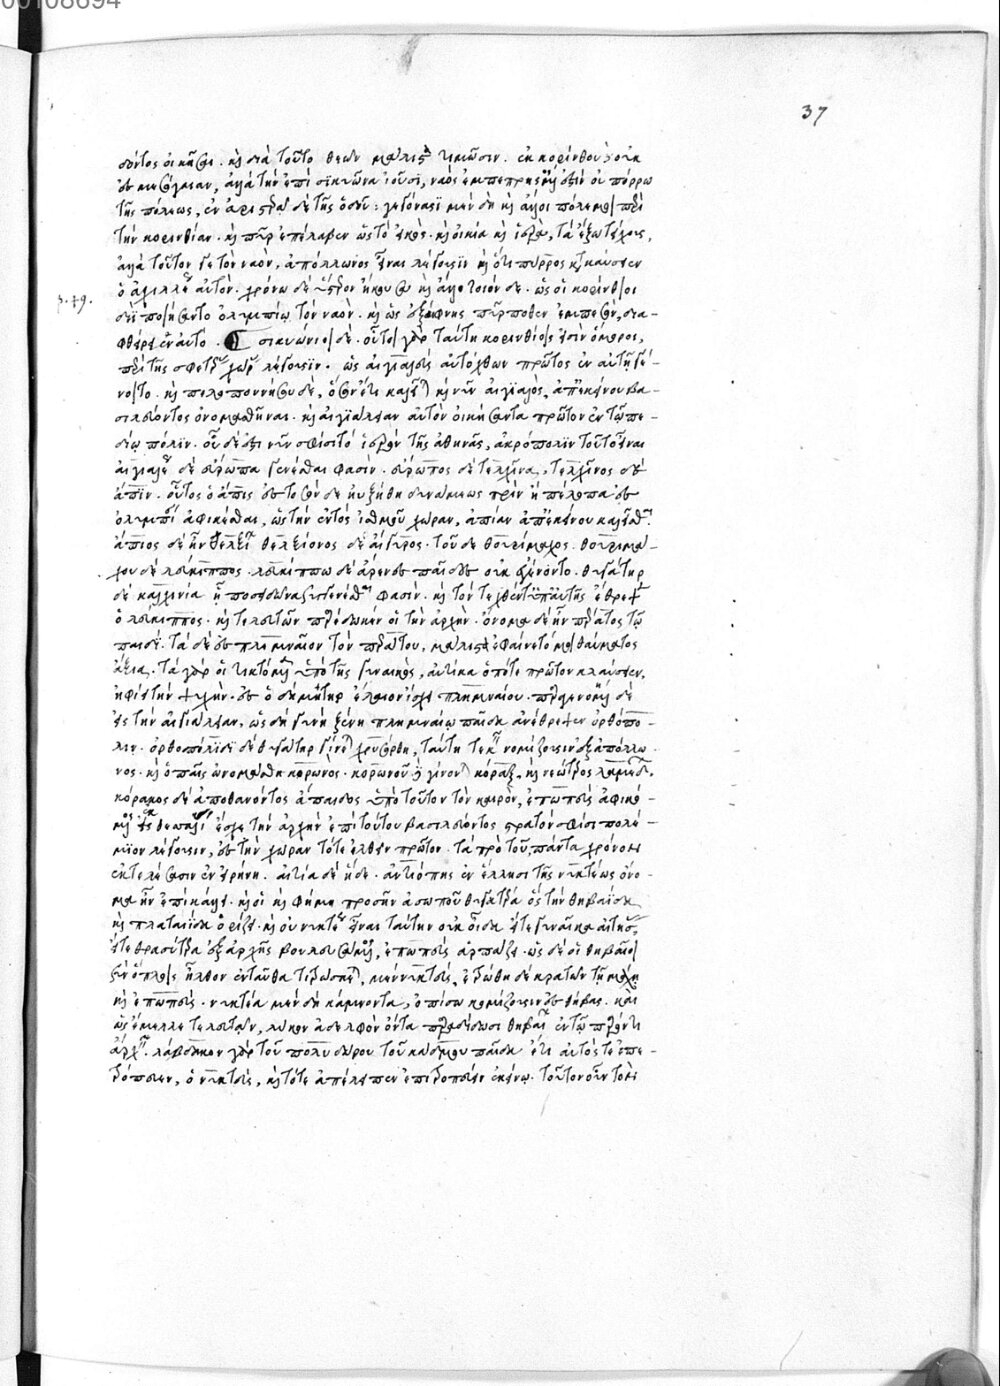 δόντος οἰκῆσαι. καὶ διὰ τοῦτο θεῶν μάλιστα τιμῶσιν. ἐκ κορίνθου δ' οὐκ
ἐς μεσόγαιαν, ἀλλὰ τὴν ἐπὶ σικυῶνα ἰοῦσι, ναὸς ἐμπεπρησμένος ἐστὶν οὐ πόρρω
τῆς πόλεως, ἐν ἀριστερᾷ δὲ τῆς ὁδοῦ: γεγόνασι μὲν δὴ καὶ ἄλλοι πόλεμοι περὶ
τὴν κορινθίαν. καὶ πῦρ ἐπέλαβεν ὡς τὸ εἰκὸς. καὶ οἰκία καὶ ἱερὰ, τὰ ἔξω τείχους,
ἀλλὰ τοῦτον γε τὸν ναὸν, ἀπόλλωνος εἶναι λέγουσιν καὶ ὅτι πύρρος κατακαύσειεν
ὁ ἀχιλλέως αὐτόν. χρόνω δὲ ὕστερον ἤκουσα καὶ ἄλλο τοιόν δε. ὡς οἱ κορίνθιοι
διῒ ποιήσαντο ὀλυμπίῳ τὸν ναὸν. καὶ ὡς ἐξαίφνης πῦρ ποθεν ἐμπεσὸν, δια-
φθείρειεν αὐτό. σικυώνιοι δὲ. οὗτοι γὰρ ταύτη κορινθίοις εἰσὶν ὅμοροι,
περὶ τῆς σφετέρας χώρας λέγουσιν. ὡς αἰγιαλεὺς αὐτόχθων πρῶτος ἐν αὐτῇ γέ-
νοιτο. καὶ πελοποννήσου δὲ, ὅσον ἔτι καλεῖται καὶ νῦν αἰγιαλὸς, ἀπ' ἐκείνου βα-
σιλεύοντος ὀνομασθῆναι. καὶ αἰγιάλειαν αὐτὸν οἰκήσαντα πρῶτον ἐν τῷ πε-
δίῳ πόλιν. οὗ δέ ἐστι νῦν σφίσι τὸ ἱερὸν τῆς ἀθηνᾶς, ἀκρόπολιν τοῦτο εἶναι
αἰγιαλέως δὲ εὔρωπα γενέσθαι φασίν. εὔρωπος δὲ τελχῖνα, τελχῖνος δὲ
ἄπιν. οὗτος ὁ ἄπις ἐς τοσόν δε ηὐξήθη δυνάμεως πρὶν ἢ πέλοπα ἐς
ὀλυμπίαν ἀφικέσθαι, ὡς τὴν ἐντὸς ἰσθμοῦ χώραν, ἀπίαν ἀπ' ἐκείνου καλεῖσθαι.
ἄπιος δὲ ἦν θελξίων θελξίονος δὲ αἴγυρος. τοῦ δὲ θουρίμαχος. θουριμά-
χου δὲ λεύκιππος. λευκίππω δὲ ἄρρενες παῖδες οὐκ ἐγένοντο. θυγάτηρ
δὲ καλχινία ᾗ ποσειδῶνα συγγενέσθαι φασίν. καὶ τὸν τεχθέντα ὑπ' αὐτῆς ἔθρεψεν
ὁ λεύκιππος. καὶ τελευτῶν παρέδωκέν οἱ τὴν ἀρχὴν. ὄνομα δὲ ἦν πέρατος τῷ
παιδί. τὰ δὲ ἐς πλημναῖον τὸν περάτου, μάλιστα ἐφαίνετό μοι θαύματος
ἄξια. τὰ γάρ οἱ τικτόμενα ὑπὸ τῆς γυναικὸς, αὐτίκα ὁπότε πρῶτον κλαύσειεν,
ἠφίει τὴν ψυχὴν. ἐς ὃ δημήτηρ ἔλεον ἴσχει πλημναίου. παραγενομένη δὲ
ἐς τὴν αἰγιάλειαν, ὡς δὴ γυνὴ ξένη πλημναίω παῖδα ἀνέθρεψεν ὀρθόπο-
λιν. ὀρθοπόλιδι δὲ θυγάτηρ γίνεται χρυσόρθη, ταύτη τεκεῖν νομίζουσιν ἐξ ἀπόλλω-
νος. καὶ ὁ παῖς ὠνομάσθη κόρωνος. κορώνου δὲ γίνονται κόραξ, καὶ νεώτερος λαμέδων.
κόρακος δὲ ἀποθανόντος ἄπαιδος ὑπὸ τοῦτον τὸν καιρὸν, ἐπωπεὺς ἀφικό-
μενος ἐκ θεσσαλίας ἔσχε τὴν ἀρχὴν ἐπὶ τούτου βασιλεύοντος στρατόν σφίσι πολέ-
μιον λέγουσιν, ἐς τὴν χώραν τότε ἐλθεῖν πρῶτον. τὰ πρὸ τοῦ, πάντα χρόνον
ἐκτελέσασιν ἐν εἰρήνῃ. αἰτία δὲ ἥδε. ἀντιόπης ἐν ἕλλησι τῆς νυκτέως ὄνο-
μα ἦν ἐπὶ κάλλει. καί οἱ καὶ φήμη προσῆν ἀσωποῦ θυγατέρα ὃς τὴν θηβαΐδα
καὶ πλαταιΐδα ὁρίζει. καὶ οὐ νυκτέως εἶναι ταύτην οὐκ οἶδα εἴτε γυναῖκα αἰτήσας,
εἴτε θρασύτερα ἐξ ἀρχῆς βουλευσάμενος, ἐπωπεὺς ἁρπάζει. ὡς δὲ οἱ θηβαῖοι
ξὺν ὅπλοις ἦλθον ἐνταῦθα τιτρώσκεται, μὲν νυκτεὺς, ἐτρώθη δὲ κρατῶν τῇ μάχῃ
καὶ ἐπωπεὺς. νυκτέα μὲν δὴ κάμνοντα, ὀπίσω κομίζουσιν ἐς θήβας. καὶ
ὡς ἔμελλε τελευτᾶν, λύκον ἀδελφὸν ὄντα παραδίδωσι θηβαίων ἐν τῷ παρόντι
ἄρχειν. λάβδακον γὰρ τοῦ πολυδώρου τοῦ κάδμου παῖδα ἔτι αὐτός τε ἐπε-
τρόπευεν, ὁ νυκτεὺς, καὶ τότε ἀπέλειπεν ἐπιτροπεύειν ἐκείνῳ. τοῦτον οὖν τὸν